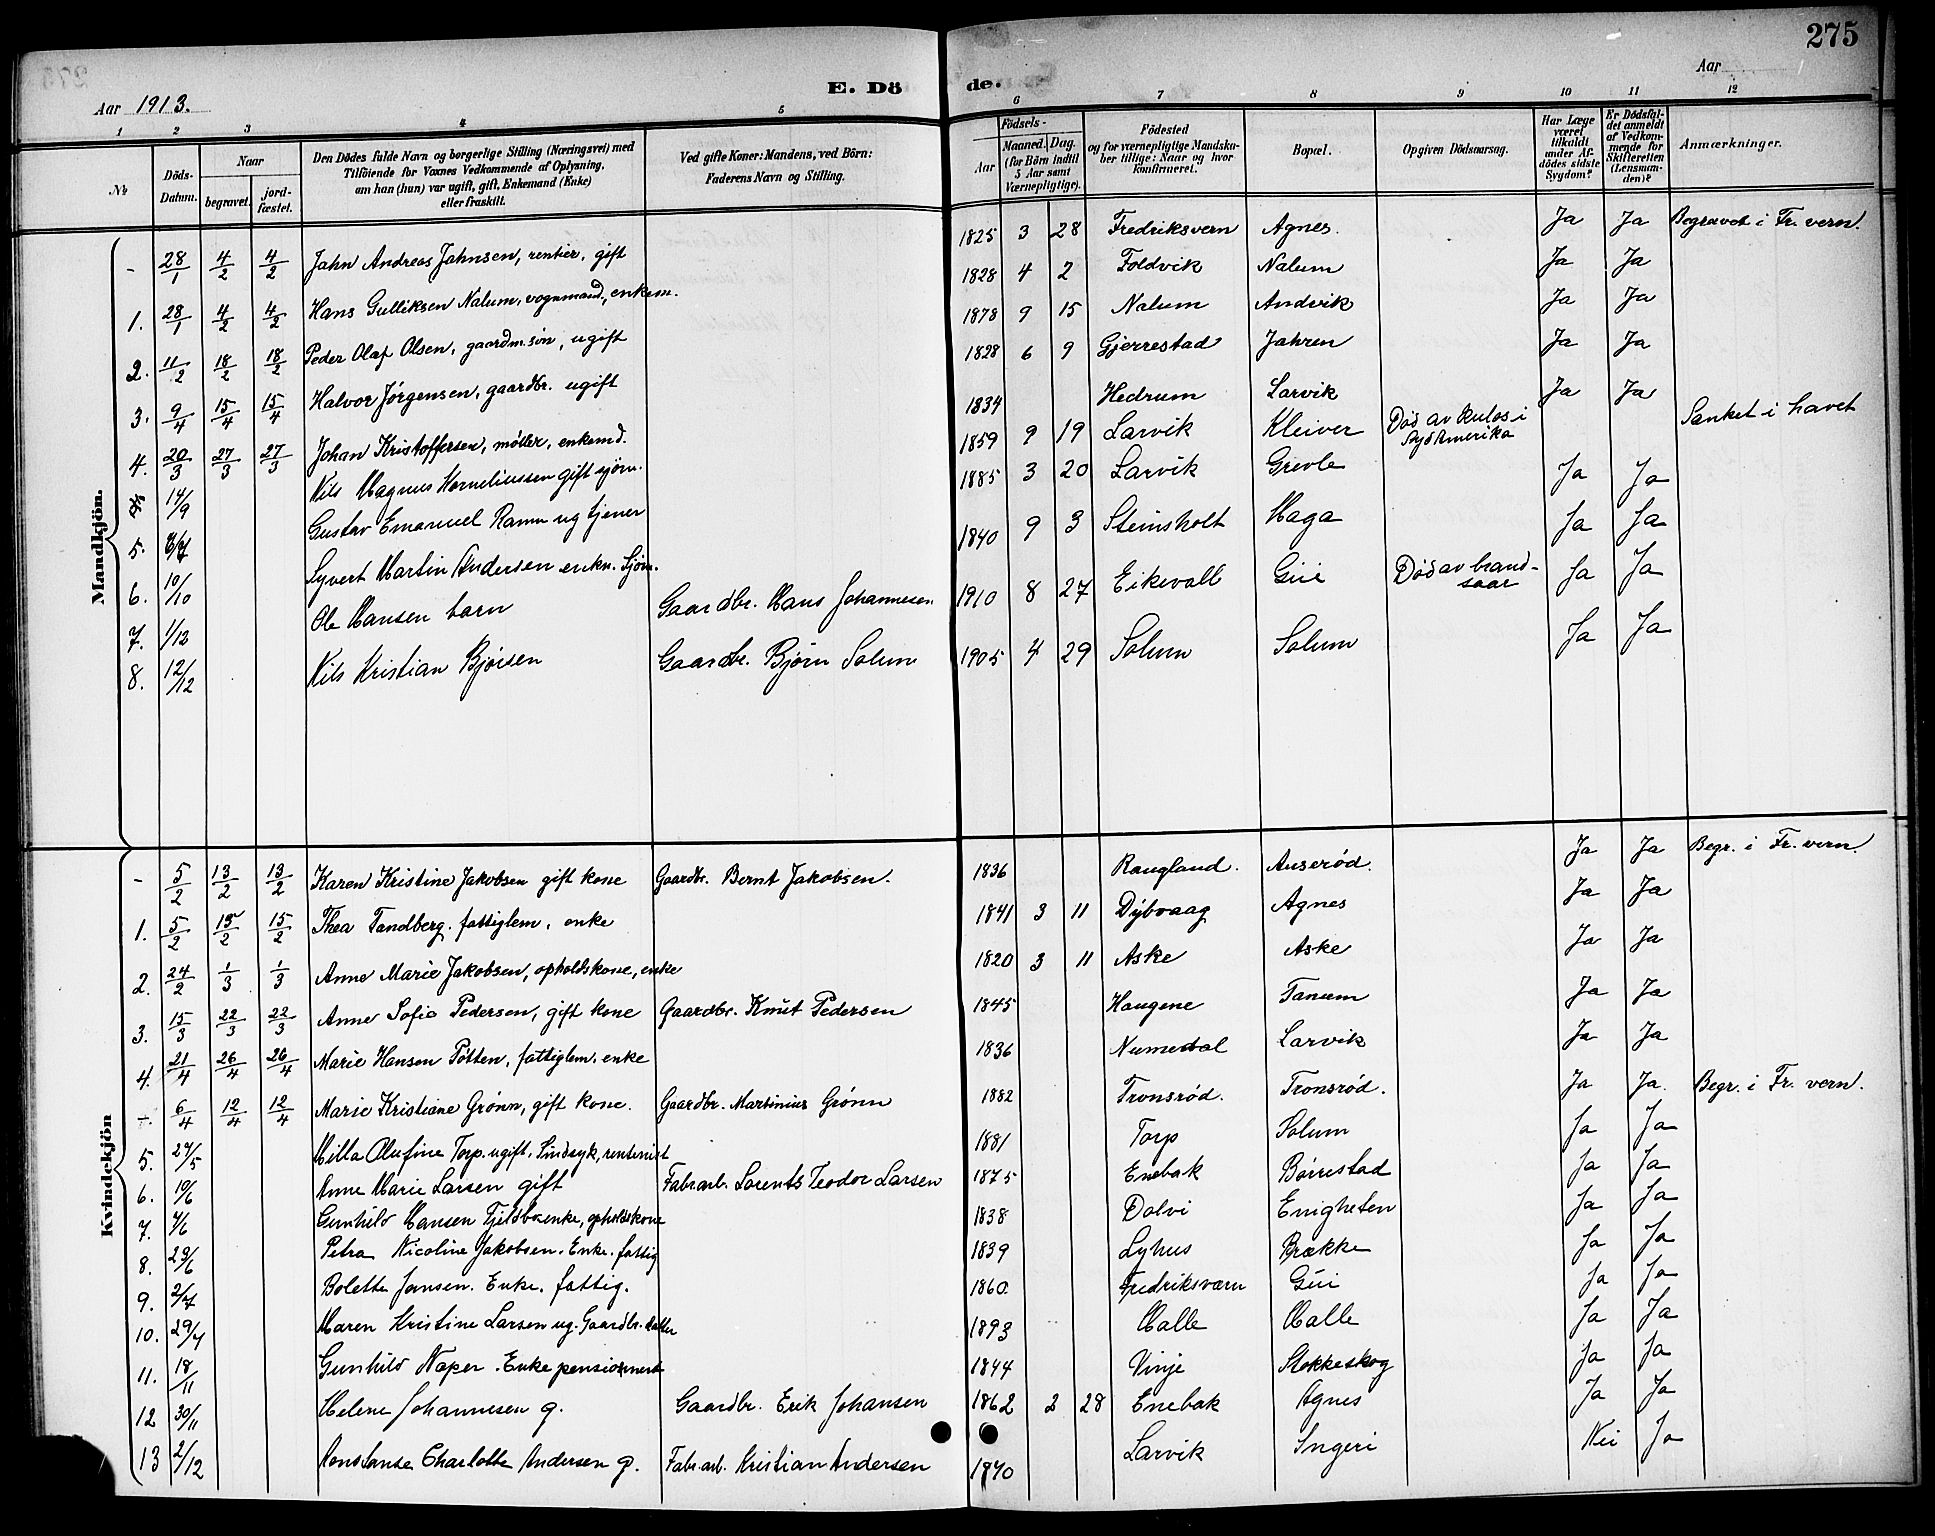 275
Aar 1913.
E. Dö
de.
Aar
1 2 3 4 5 6 7 8 9 10 11 12
№
Döds-Datum.
Naar
begravet.
jord-fæstet.
Den Dödes fulde Navn og borgerlige Stilling (Næringsvei) med
Tilföiende for Voxnes Vedkommende af Oplysning,
om han (hun) var ugift, gift, Enkemand (Enke)
eller fraskilt.
Ved gifte Koner: Mandens, ved Börn:
Faderens Navn og Stilling.
Födsels-
Aar
Maaned. Dag.
(for Börn indtil
5 Aar samt
Værnepligtige).
Födested
og for værnepligtige Mandska-
ber tillige: Naar og hvor
konfirmeret.
Bopæl.
Opgiven Dödsaarsag.
Har Læge
været
tilkaldt
under Af-
dödes sidste
Sygdom?
Er Dödsfal-
det anmeldt
af Vedkom-
mende for
Skifteretten
(Lensman-
den)?
Anmærkninger.
Mandkjön.
- 28/1 4/2 4/2 Jahn Andreas Jahnsen, rentier, gift 1825 3 28 Fredriksvern Agnes. Ja Ja Begravet i Fr. vern.
1. 28/1 4/2 4/2 Hans Gulliksen Nalum, vognmand, enkem. 1828 4 2 Foldvik Nalum Ja Ja
2. 11/2 18/2 18/2 Peder Olaf Olsen, gaardm. søn, ugift 1878 9 15 Nalum Andvik Ja Ja
3. 9/4 15/4 15/4 Halvor Jørgensen, gaardbr. ugift 1828 6 9 Gjerrestad Jahren Ja Ja
4. 20/3 27/3 27/3 Johan Kristoffersen, møller, enkemd. 1834 Hedrum Larvik Ja Ja
14/9 Nils Magnus Korneliussen gift sjøm. 1859 9 19 Larvik Kleiver Død av kulos i Syd Amerika Sænket i havet
5. Gustav Emanuel Ramm ug tjener 1885 3 20 Larvik Grevle Ja Ja
6. 10/10 Syvert Martin Andersen enkn. Sjøm. 1840 9 3 Steinsholt Haga Ja Ja
7. 1/12 Ole Hansen barn Gaardbr. Hans Johannesen 1910 8 27 Eikevall Gui Død av brand-saar Ja Ja
8. 12/12 Nils Kristian Bjørsen Gaardbr. Bjørn Solum 1905 4 29 Solum Solum Ja Ja
Kvindekjön
- 5/2 13/2 13/2 Karen Kristine Jakobsen gift kone Gaardbr. Bernt Jakobsen. 1836 Raugland. Auserød. Ja Ja Begr. i Fr. vern.
1. 5/2 15/2 15/2 Thea Tandberg. fattiglem, enke 1841 3 11 Dybvaag Agnes Ja Ja
2. 24/2 1/3 1/3 Anne Marie Jakobsen, opholdskone, enke 1820 3 11 Aske Aske Ja Ja
3. 15/3 22/3 22/3 Anne Sofie Pedersen, gift kone Gaardbr. Knut Pedersen 1845 Haugene Tanum Ja Ja
4. 21/4 26/4 26/4 Marie Hansen Pøtten, fattiglem. enke 1836 Numedal Larvik Ja Ja
- 6/4 12/4 12/4 Marie Kristiane Grønn, gift kone. Gaardbr. Martinius Grønn 1882 Tronsrød. Tronsrød. Ja Ja. Begr. i Fr. vern.
5. 27/5 Milla Olufine Torp. ugift. Sindsyk, rentenist 1881 Torp Solum Ja Ja
6. 10/6 Anne Marie Larsen gift Fabr.arb. Lorents Teodor Larsen 1875 Enebak Børrestad Ja Ja
7. 4/6 Gunhild Hansen Fjeldbo enke, opholdskone 1838 Dalvi Enigheten Ja Ja
8. 29/6 Petra Nicoline Jakobsen. Enke. fattig 1839 Lyhus Brække Ja Ja
9. 2/7 Bolette Jansen. Enke. fattig. 1860 Fredriksværn Gui Ja Ja
10. 29/7 Maren Kristine Larsen ug. Gaardbr. datter 1893 Halle Halle Ja Ja
11. 18/11 Gunhild Naper. Enke pensionert 1844 Vinje Stokkeskog Ja Ja
12 30/11 Helene Johannesen g. Gaardbr. Erik Johansen 1862 2 28 Enebak Agnes Ja Ja
13 2/12 Konstanse Charlotte Andersen g. Fabr.arb. Kristian Andersen 1840 Larvik Ja
Nei